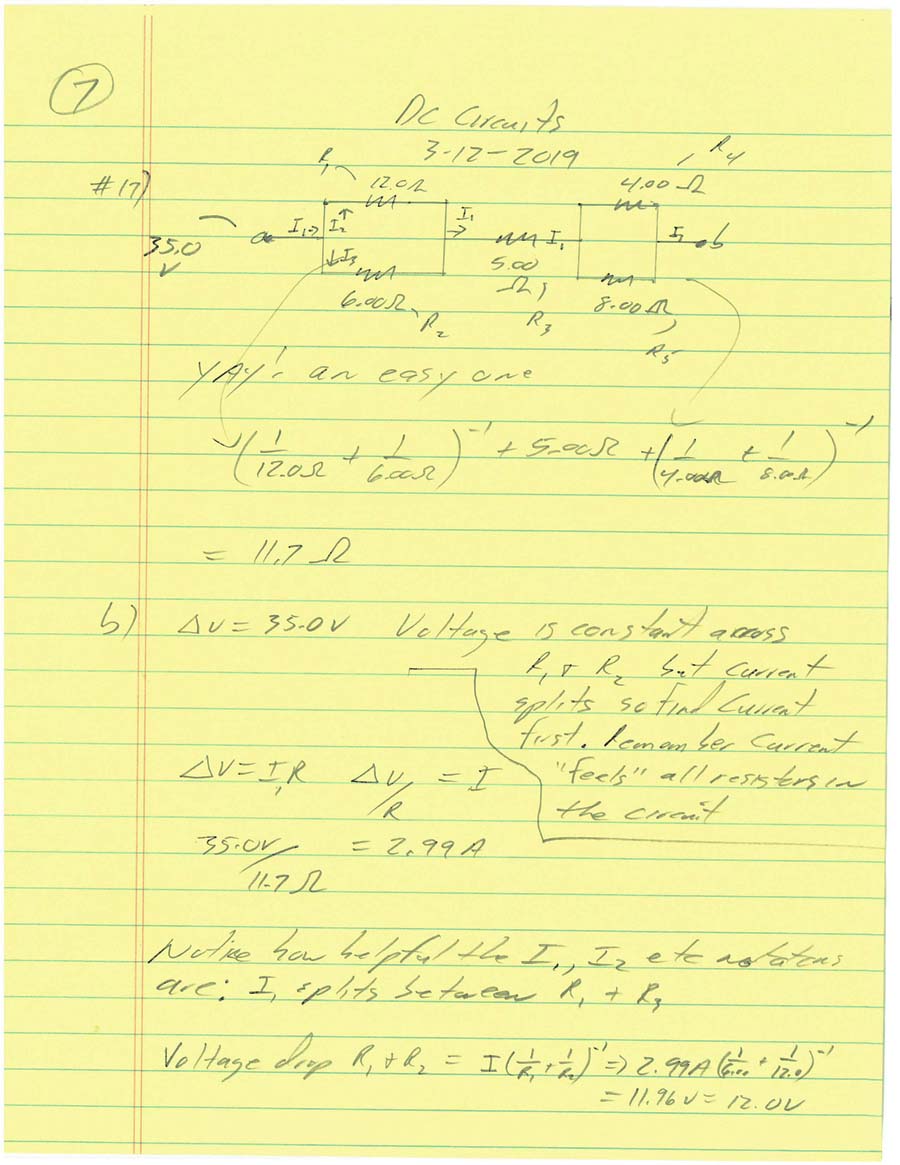 7
DC Circuits
3-12-2019
#17)
R₁ 12.0Ω 4.00Ω R₄
35.0 V a I₁→ I₂↑ ↓I₃ I₁→ 5.00 Ω, I₁ I₁ b
6.00Ω R₂ R₃ 8.00Ω, R₅
YAY! an easy one
(1/12.0Ω + 1/6.00Ω)⁻¹ + 5.00Ω + (1/4.00Ω + 1/8.00Ω)⁻¹
= 11.7 Ω
b) ΔV = 35.0V Voltage is constant across
R₁ + R₂ but current
splits so find current
first. Remember current
"feels" all resisters in
the circuit
ΔV = I₁R ΔV/R = I
35.0V/11.7Ω = 2.99A
Notice how helpful the I₁, I₂ etc notations
are: I₁ splits between R₁ + R₃
Voltage drop R₁ + R₂ = I(1/R₁ + 1/R₂)⁻¹ => 2.99A(1/6.00 + 1/12.0)⁻¹
= 11.96V = 12.0V